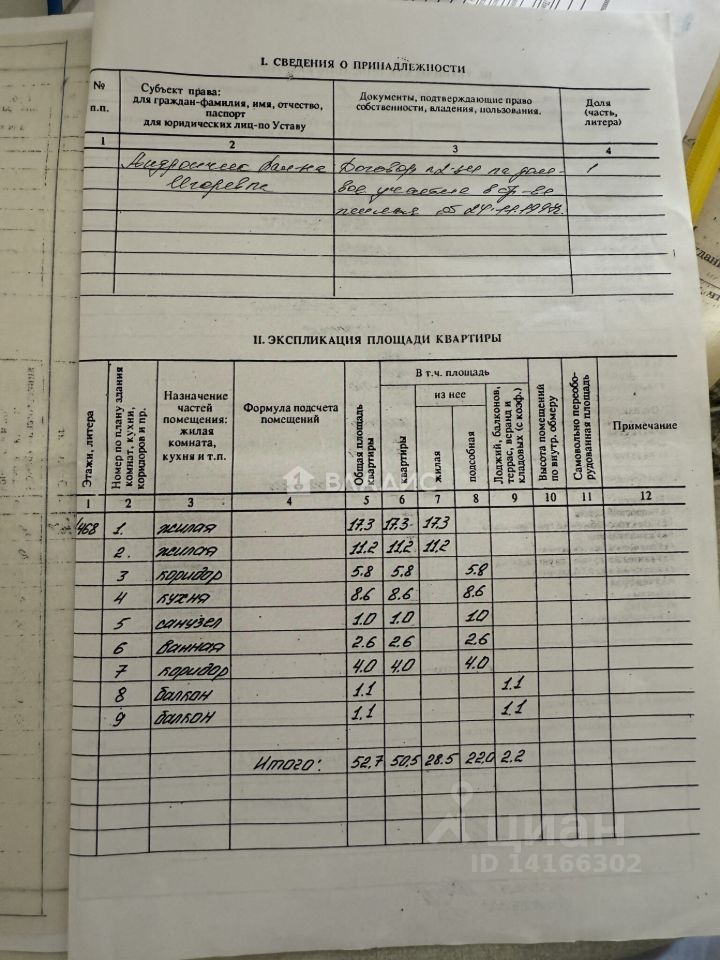 I. СВЕДЕНИЯ О ПРИНАДЛЕЖНОСТИ
№ п.п.
Субъект права: для граждан-фамилия, имя, отчество, паспорт для юридических лиц-по Уставу
Документы, подтверждающие право собственности, владения, пользования.
Доля (часть, литера)
1 2 3 4
Игоревна
Договор на доле- 1
вое участие в
от 24.11.199
II. ЭКСПЛИКАЦИЯ ПЛОЩАДИ КВАРТИРЫ
Этажи, литера
Номер по плану здания комнат, кухни, коридоров и пр.
Назначение частей помещения: жилая комната, кухня и т.п.
Формула подсчета помещений
Общая площадь квартиры
В т.ч. площадь
квартиры
из нее
жилая
подсобная
Лоджий, балконов, террас, веранд и кладовых (с коэф.)
Высота помещений по внутр. обмеру
Самовольно переобо- рудованная площадь
Примечание
1 2 3 4 5 6 7 8 9 10 11 12
468 1. жилая 17.3 17.3 17.3
2. жилая 11.2 11.2 11.2
3 коридор 5.8 5.8 5.8
4 кухня 8.6 8.6 8.6
5 санузел 1.0 1.0 1.0
6 ванная 2.6 2.6 2.6
7 коридор 4.0 4.0 4.0
8 балкон 1.1 1.1
9 балкон 1.1 1.1
Итого: 52,7 50,5 28.5 22.0 2.2
ВЛАДИС
циан
ID 14166302